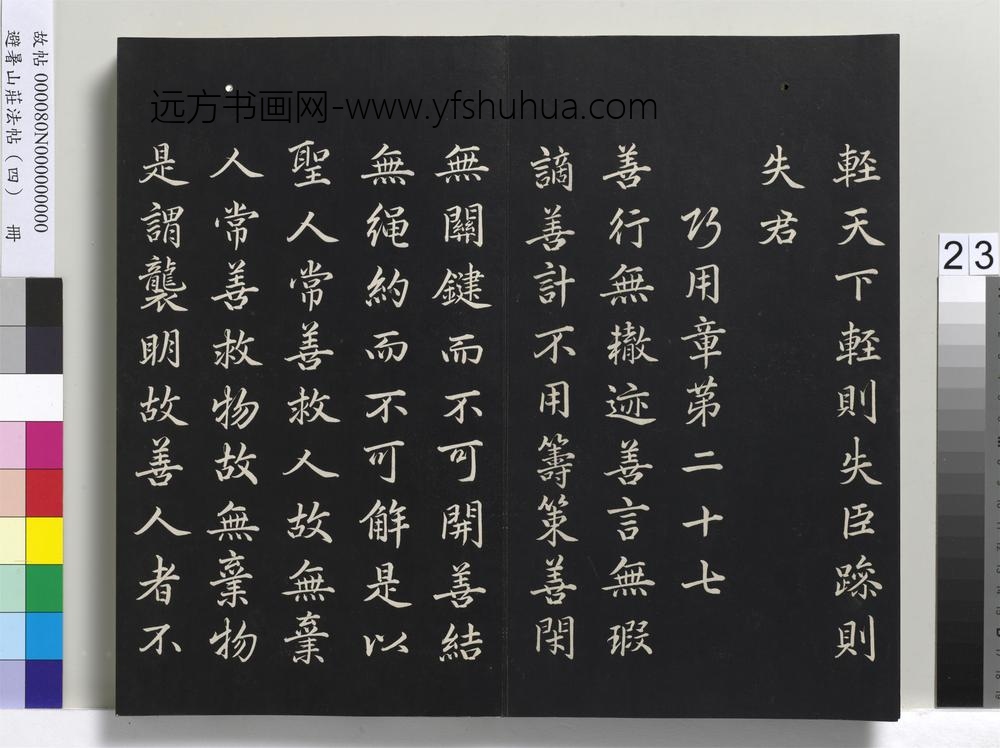 輕天下輕則失臣躁則
失君
巧用章第二十七
善行無轍迹善言無瑕
謫善計不用籌策善閑
無關鍵而不可開善結
無繩約而不可解是以
聖人常善救人故無棄
人常善救物故無棄物
是謂襲明故善人者不
远方书画网-www.yfshuhua.com
故帖 000080N000000000
避暑山莊法帖（四） 冊
23